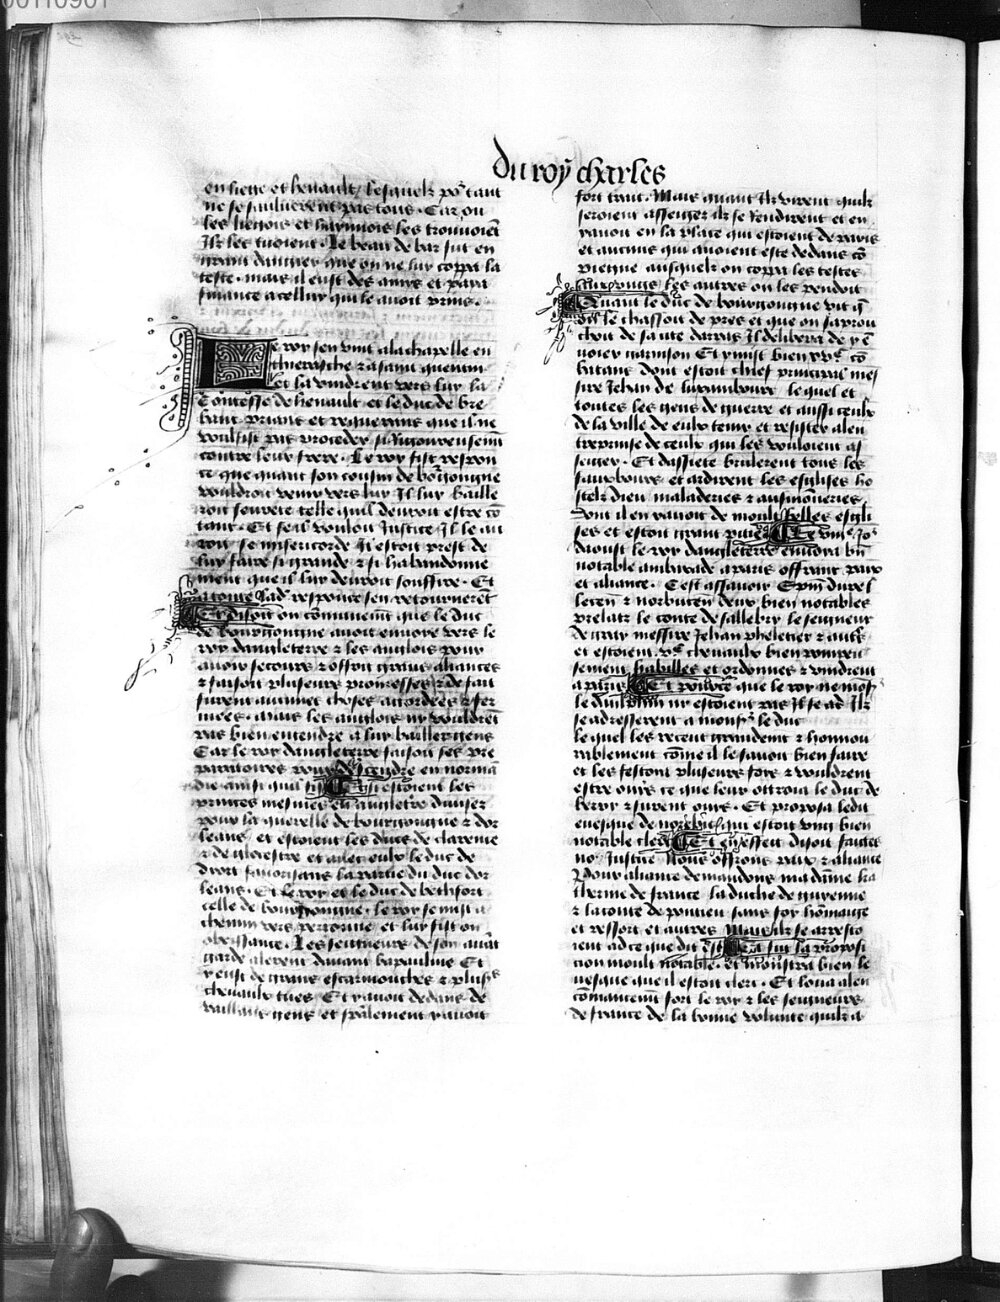 du roy charles
en liege et henault / lesquelz por tant
ne se saulverent pas tous. Car ou
les liegois et haynuiois les trouvoient
Ilz les tuoient. Le beau de bar fut en
grant dangier que on ne luy coppa la
teste. mais il eust des amys et paia
finance a celluy qui le avoit prins.
Le roy sen vint a la chapelle en
thierasche et a saint quentin
et la vindrent vers luy la
Contesse de henault et le duc de bre
bant prians et requerans que il ne
voulsist pas proceder si rigoureusement
contre leur frere. Le roy fist respon
ce que quant son cousin de bourgongne
vouldroit venir vers luy Il luy baille
roit seurete telle quil devroit estre co
tant. Et se il vouloit Justice Il le au
roit se misericorde Il estoit prest de
luy faire si grande et si habandonne
ment que il luy devroit souffire. Et
a tout lad response sen retournerent
Et disoit on communement que le duc
de bourgongne avoit envoye vers le
roy dangleterre et les anglois pour
avoir secours et offroit grans aliances
et faisoit plusieurs promesses et de fait
furent aucunes choses accordees et fer
mees. mais les anglois ny vouldrent
pas bien entendre a luy baillier gens
Car le roy dangleterre faisoit ses pre
paratoires pour descendre en norma
die ainsi quil fist Et si estoient les
princes mesmes en angletre divisez
pour la querelle de bourgongne et dor
leans, et estoient les ducs de clarence
et de glocestre et avec eulx le duc de
diort favorisans la partie du duc dor
leans. Et le roy et le duc de bethfort
celle de bourgongne. le roy se mist a
chemin vers peronne et luy fist on
obeissance. Les seigneurs de son avat
garde alerent devant bapaulme Et
y eust de grans escarmouches et plusrs
chevaulx tues. Et y avoit dedans de
vaillans gens et specialement y avoit
fort trait. Mais quant Ilz virent quilz
seroient assegez Ilz se rendirent et en
y avoit en la place qui estoient de paris
et aucuns qui avoient este dedans co
piegne ausquelz on coppa les testes
Quant le duc de bourgongne vit q
on le chassoit de pres et que on saprou
choit de sa ville darras Il delibera de y e
voier garnison Et y mist bien
batans dont estoit chief principal mes
sire Jehan de luxembourc lequel et
toutes les gens de guerre et aussi ceulx
de la ville de eulx tenir et resister a len
treprinse de ceulx qui les vouloient as
seiger. Et dassiete brulerent tous les
faulxbours et ardirent les esglises ho
stelz dieu maladeries et ausmoneries
dont il en y avoit de moult belles esgli
ses et estoit grant pitie Le
daoust le roy dangleterre envoya un
notable ambaxade a paris offrant paix
et aliance. Cest assavoir
prelatz le conte de sallebry le seigneur
de gray messire Jehan et autres
et estoient chevaulx bien pompeu
sement habilles et ordonnes et vindrent
a paris Et pource que le roy ne monsr
le daulphin ny estoient pas Ilz
se adresserent a monsr le duc
le quel les receut grandement et honnou
rablement comme il le savoit bien faire
et les festoia plusieurs fois et vouldrent
estre ouys ce que leur ottroia le duc de
berry et furent ouys. Et proposa ledit
evesque de qui estoit ung bien
notable clerc Et en effect disoit
nos Justice Nous offrons paix et aliance
Pour aliance demandons madame ka
therine de france la duche de guyenne
et la conte de pontieu sans foy hommage
et ressort et autres Mais Ilz se arresto
ient ad ce que dit est Et fut la proposi
cion moult notable et monstra bien le
vesque que il estoit clerc. Et loua a len
comancement fort le roy et les seigneurs
de france de la bonne volunte quilz a